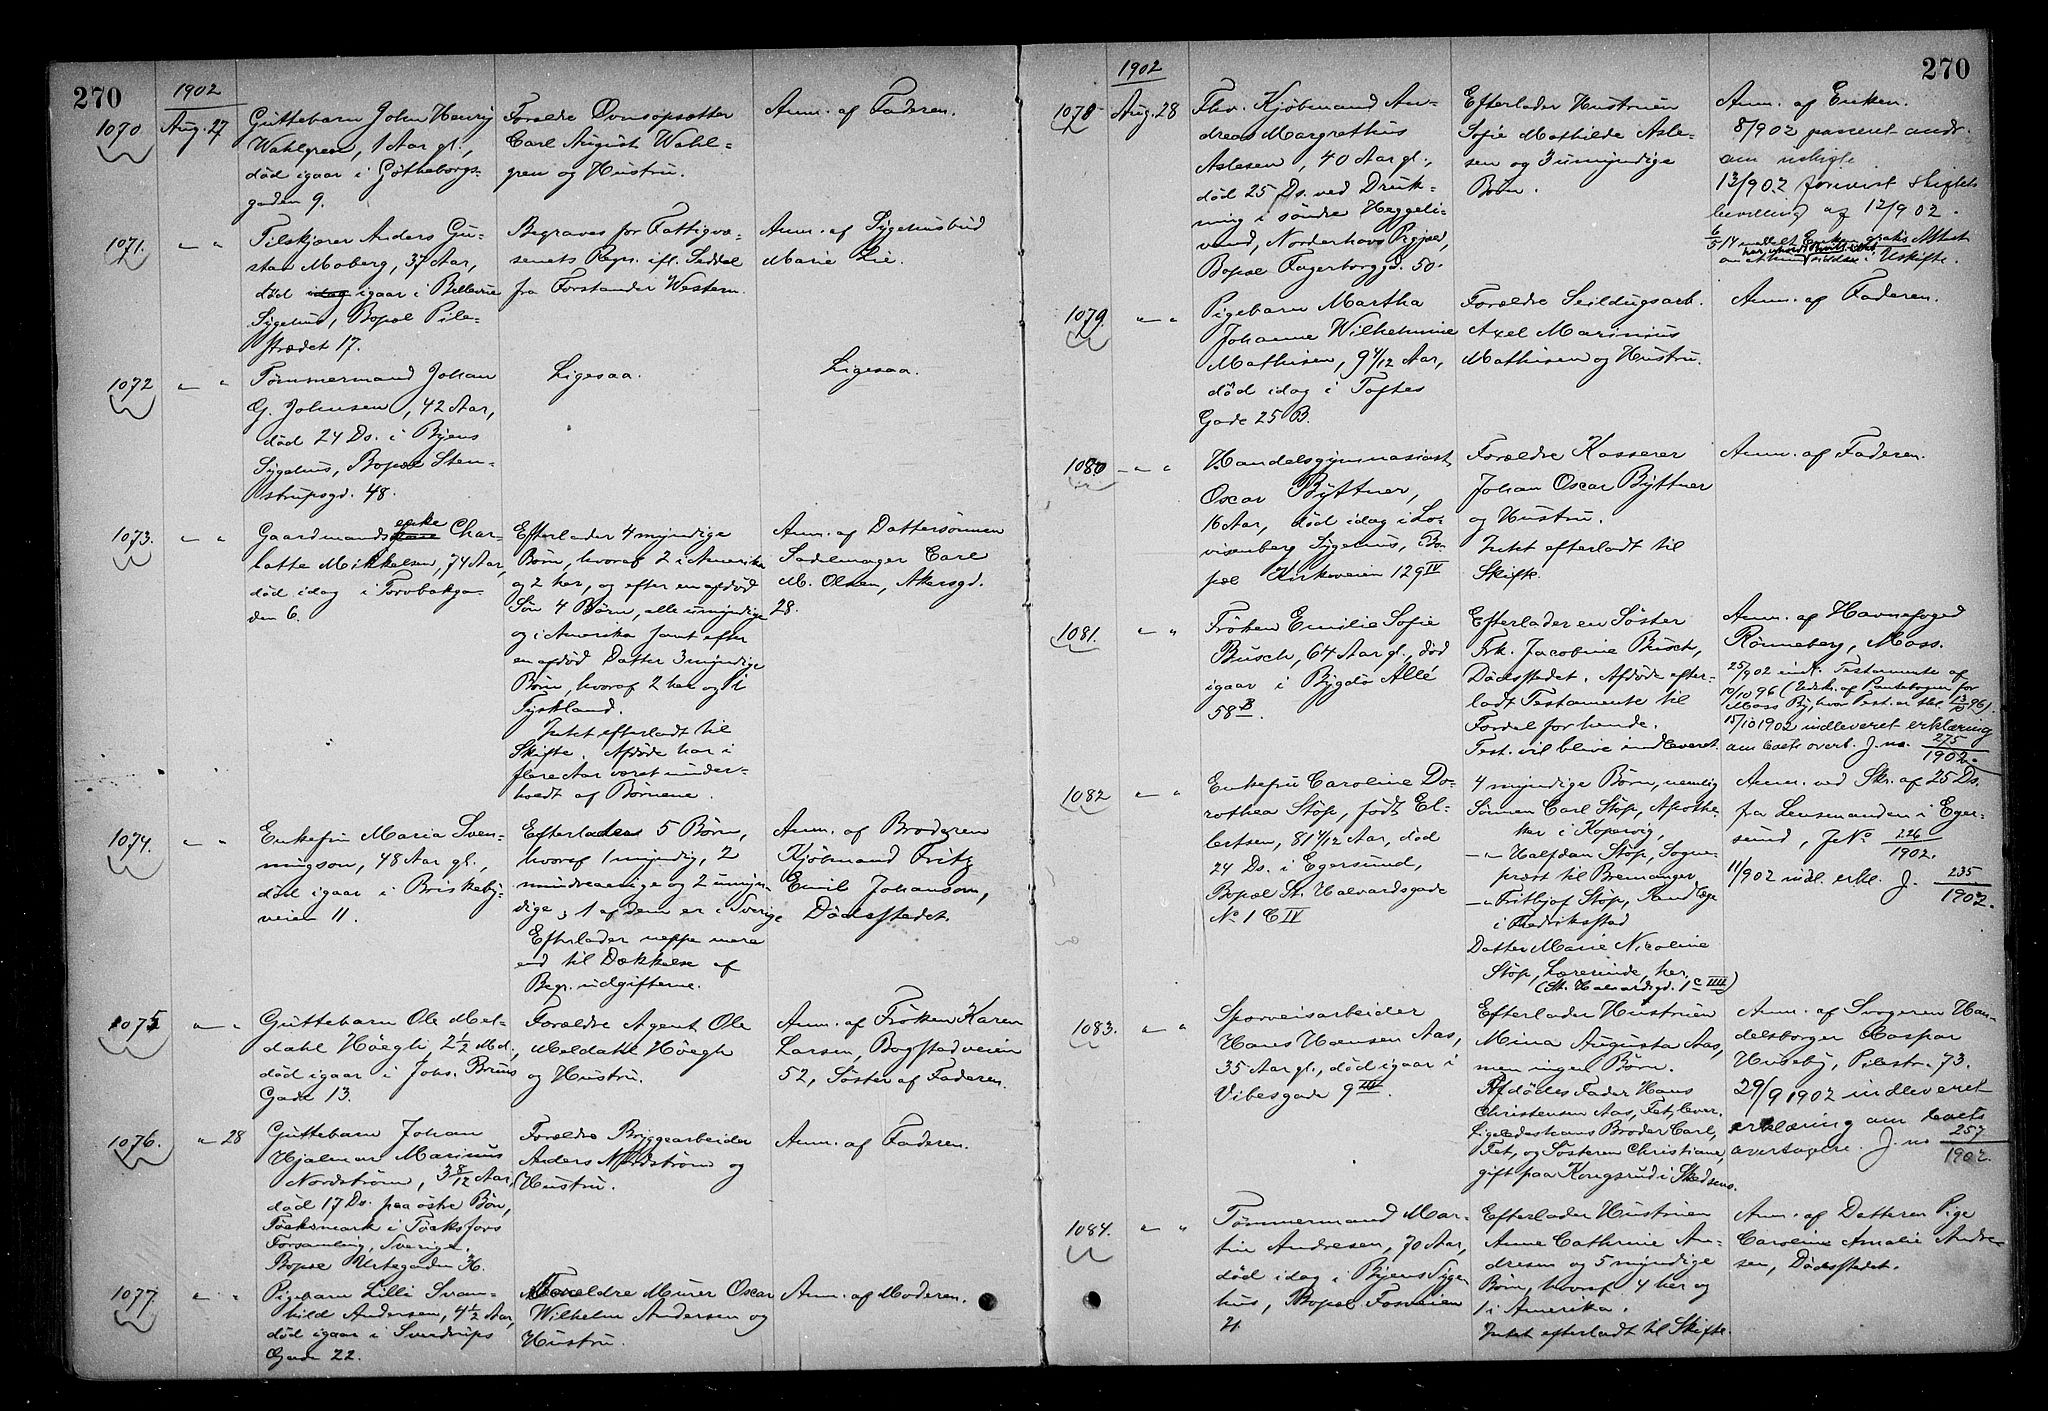 270
1902
1070
Aug. 27
Guttebarn John Henry
Wahlgren, 1 Aar gl.,
død igaar i Gøtheborgs-
gaden 9.
Forældre Ovnsopsætter
Carl August Wahl-
gren og Hustru.
Anm. af Faderen.
1071.
" — "
Tilskjærer Anders Gu-
stav Moberg, 37 Aar,
død idag igaar i Bellevue
Sygehus, Bopæl Pile-
strædet 17.
Begraves for Fattigvæ-
senets Regn. ifl. Seddel
fra Forstander Western.
Anm. af Sygehusbud
Marie Lie.
1072
" — "
Tømmermand Johan
G. Johnsen, 42 Aar,
død 24 Ds. i Byens
Sygehus, Bopæl Sten-
strupsgd. 48.
Ligesaa.
Ligesaa.
1073.
" — "
enke
Gaardmands Char-
lotte Mikkelsen, 74 Aar,
død idag i Torvbakga-
den 6.
Efterlader 4 myndige
Børn, hvoraf 2 i Amerika
og 2 her, og efter en afdød
Søn 4 Børn, alle umyndige
og i Amerika samt efter
en afdød Datter 3 myndige
Børn, hvoraf 2 her og 1 i
Tyskland.
Intet efterladt til
Skifte. Afdøde har i
flere Aar været under-
holdt af Børnene.
Anm. af Dattersønnen
Sadelmager Carl
M. Olsen, Akersgd.
28.
1074.
" — "
Enkefru Maria Sven-
ningson, 48 Aar gl.,
død igaar i Briskeby-
veien 11.
Efterlader 5 Børn,
hvoraf 1 myndig, 2
mindreaarige og 2 umyn-
dige; 1 af dem er i Sverige
Efterlader neppe mere
end til Dækkelse af
Begr. udgifterne.
Anm. af Broderen
Kjøbmand Fritz
Emil Johanson,
Dødsstedet.
1075
" — "
Guttebarn Ole Mel-
dahl Höegh, 2 1/2 Md.,
død igaar i Johs. Bruns
Gade 13.
Forældre Agent Ole
Meldahl Höegh
og Hustru.
Anm. af Frøken Karen
Larsen, Bogstadveien
52, Søster af Faderen.
1076.
" 28
Guttebarn Johan
Hjalmar Marinius
Nordström, 3 8/12 Aar,
død 17 Ds. paa østre Bön,
Töcksmark i Töcksfors
Forsamling, Sverige.
Bopæl Urtegaden 36.
Forældre Bryggearbeider
Anders Nordström og
Hustru.
Anm. af Faderen.
1077.
" — "
Pigebarn Lilli Svan-
hild Andersen, 4 1/2 Aar,
død igaar i Sverdrups
Gade 22.
Forældre Murer Oscar
Wilhelm Andersen og
Hustru.
Anm. af Moderen.
270
1902
1078
Aug. 28
Fhv. Kjøbmand An-
dreas Margrethus
Aslesen, 40 Aar gl.,
død 25 Ds. ved Druk-
ning i søndre Heggeli-
vand, Norderhovs Prgjæld,
Bopæl Fagerborggd. 50.
Efterlader Hustruen
Sofie Mathilde Asle-
sen og 3 umyndige
Børn.
Anm. af Enken.
8/9 02
13/9 02 forevist Skifte-
bevilling af 12/9 02.
6/5 14 meddelt Enken gratis Attest
om at hun sidder i Uskifte.
1079.
" — "
Pigebarn Martha
Johanne Wilhelmine
Mathisen, 9 4/12 Aar,
død idag i Toftes
Gade 25 B.
Forældre Seildugsarb.
Axel Marinius
Mathisen og Hustru.
Anm. af Faderen.
1080
" — "
Handelsgymnasiast
Oscar Byttner,
16 Aar, død idag i Lo-
visenberg Sygehus, Bo-
pæl Kirkeveien 129 IV
Forældre Kasserer
Johan Oscar Byttner
og Hustru.
Intet efterladt til
Skifte.
Anm. af Faderen.
1081.
" — "
Frøken Emilie Sofie
Busch, 64 Aar gl., død
igaar i Bygdø Allé
58 B.
Efterlader en Søster
Frk. Jacobine Busch,
Dødsstedet. Afdøde efter-
ladt Testamente til
Fordel for hende.
Test. vil blive indleveret.
Anm. af Havnefoged
Rønneberg, Moss.
25/9 02 indk. Testamente af
10/10 96 (Udskr. af Pantebogen for
Moss By, hvor Test. er thl. 13/10 96).
15/10 1902 indleveret erklæring
om boets overt. J. no. 275/1902.
1082
" — "
Enkefru Caroline Do-
rothea Støp, født El-
lertsen, 81 4/12 Aar, død
24 Ds. i Egersund,
Bopæl St. Halvardsgade
No 1 C IV
4 myndige Børn, nemlig
Sønnen Carl Støp, Apothe-
ker i Kopervig,
— " — Halfdan Støp, Sogne-
præst til Bremanger
— " — Fritjof Støp, Tandlæge
i Fredriksstad
Datter Marie Nicoline
Støp, Lærerinde, her,
(St. Halvardsgd. 1 C IIII)
Anm. ved Skr. af 25 Ds.
fra Lensmanden i Eger-
sund, J No 226/1902.
11/9 02 indl. erkl. J. 235/1902.
1083.
" — "
Sporveisarbeider
Hans Hansen Aas,
35 Aar gl., død igaar i
Vibesgade 9 III.
Efterlader Hustruen
Mina Augusta Aas,
men ingen Børn.
Afdødes Fader Hans
Christensen Aas, Fet, lever.
Ligeledes hans Broder Carl,
Fet, og Søsteren Christiane,
gift paa Kongsrud i Skedsmo.
Anm. af Svogeren Han-
delsborger Caspar
Huseby, Pilestr. 73.
29/9 1902 indleveret
erklæring om boets
overtagelse. J. no 257/1902.
1084.
" — "
Tømmermand Mar-
tin Andresen, 70 Aar,
død idag i Byens Syge-
hus, Bopæl Fosveien
21.
Efterlader Hustruen
Anne Cathrine An-
dresen og 5 myndige
Børn, hvoraf 4 her og
1 i Amerika.
Intet efterladt til Skifte.
Anm. af Datteren Pige
Caroline Amalie Andre-
sen, Dødsstedet.